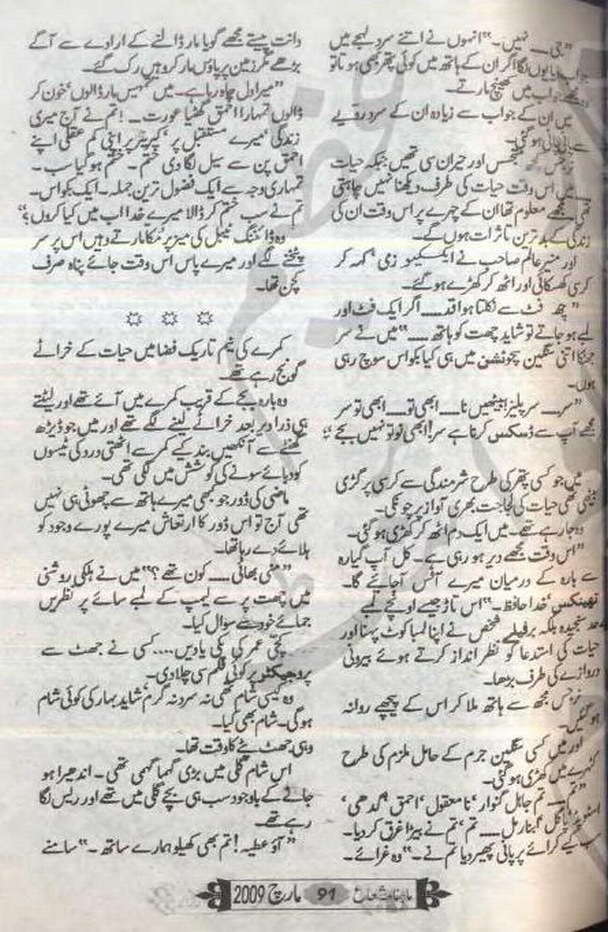 ”جی ــ نہیں۔“ انہوں نے اتنے سرد لہجے میں
جواب دیا یوں لگا اگر ان کے ہاتھ میں کوئی پتھر بھی ہوتا تو
مجھے جواب میں کھینچ مارتے۔
میں ان کے جواب سے زیادہ ان کے سرد رویے
سے پانی پانی ہوگئی۔
نرجس کچھ متجسس اور حیران سی تھیں جبکہ حیات
ــ میں اس وقت حیات کی طرف دیکھنا نہیں چاہتی
تھی مجھے معلوم تھا ان کے چہرے پر اس وقت ان کی
زندگی کے بدترین تاثرات ہوں گے۔
اور منیر عالم صاحب نے ایکسکیوز می ’کہہ کر
کرسی کھسکائی اور اٹھ کر کھڑے ہوگئے۔
”چھ فٹ سے نکلتا ہوا قد ــ اگر ایک فٹ اور
لمبے ہو جاتے تو شاید چھت کو ہاتھ ــ“ میں نے سر
جھٹکا اتنی سنگین سچویشن میں بھی کیا بکواس سوچ رہی
ہوں۔
”سر ــ سر پلیز! بیٹھیں نا ــ ابھی تو ــ ابھی تو سر
مجھے آپ سے ڈسکس کرنا ہے سر! ابھی تو نو نہیں بجے“
میں جو کسی پتھر کی طرح شرمندگی سے کرسی پر گڑی
بیٹھی تھی حیات کی لجاجت بھری آواز پر چونکی۔
وہ جارہے تھے۔ میں ایک دم اٹھ کر کھڑی ہوگئی۔
”اس وقت مجھے دیر ہو رہی ہے۔ کل آپ گیارہ
سے بارہ کے درمیان میرے آفس آجائیے گا۔
تھینکس ’خدا حافظ۔“ اس تاڑ جیسے اونچے لمبے
حد سنجیدہ بلکہ برفیلے شخص نے اپنا لمبا کوٹ پہنا اور
حیات کی استدعا کو نظر انداز کرتے ہوئے بیرونی
دروازے کی طرف بڑھا۔
نرجس مجھ سے ہاتھ ملا کر اس کے پیچھے روانہ
ہوگئیں۔
اور میں کسی سنگین جرم کے حامل ملزم کی طرح
کٹہرے میں کھڑی ہوگئی۔
”تم ــ تم جاہل گنوار ’نامعقول ’احمق ’گدھی‘
اسٹوپڈ ’پاگل ’ابنارمل ــ تم ’تم نے بیڑا غرق کردیا۔
سب کیے کرائے پر پانی پھیر دیا تم نے۔“ وہ غرائے۔
دانت پیستے مجھے گویا مار ڈالنے کے ارادے سے آگے
بڑھے مگر زمین پر پاؤں مار کر وہیں رک گئے۔
”میرا دل چاہ رہا ہے۔ میں تمہیں مار ڈالوں ’خون کر
ڈالوں تمہارا احمق گھٹیا عورت ــ! تم نے آج میری
زندگی ’میرے مستقبل پر ’کیریئر پر اپنی کم عقلی اپنے
احمق پن سے سیل لگا دی ختم۔ ختم ہوگیا سب۔
تمہاری وجہ سے ایک فضول ترین جملہ۔ ایک بکواس۔
تم نے سب ختم کر ڈالا میرے خدا اب میں کیا کروں؟“
وہ ڈائننگ ٹیبل کی میز پر مکا مارتے وہیں اس پر سر
پٹخنے لگے اور میرے پاس اس وقت جائے پناہ صرف
کچن تھا۔
☆ ☆ ☆
کمرے کی نیم تاریک فضا میں حیات کے خراٹے
گونج رہے تھے۔
وہ بارہ بجے کے قریب کمرے میں آئے تھے اور لیٹتے
ہی ذرا دیر بعد خراٹے لینے لگے تھے اور میں جو ڈیڑھ
گھنٹے سے آنکھیں بند کیے کمر سے اٹھتی درد کی ٹیسوں
کو دبائے سونے کی کوشش میں لگی تھی۔
ماضی کی ڈور جو بھی میرے ہاتھ سے چھوٹی ہی نہیں
تھی آج تو اس ڈور کا ارتعاش میرے پورے وجود کو
ہلائے دے رہا تھا۔
”منی بھائی ــ کون تھے؟“ میں نے ہلکی روشنی
میں چھت پر سے لیمپ کے لمبے سائے پر نظریں
جمائے خود سے سوال کیا۔
کچی عمر کی پکی یادیں.... کسی نے جھٹ سے
پروجیکٹر پر کوئی فلم سی چلا دی۔
وہ کیسی شام تھی نہ سرد نہ گرم ’شاید بہار کی کوئی شام
ہوگی۔ شام بھی کیا۔
وہی جھٹ پٹے کا وقت تھا۔
اس شام گلی میں بڑی گہما گہمی تھی۔ اندھیرا ہو
جانے کے باوجود سب ہی بچے گلی میں تھے اور ریس لگا
رہے تھے۔
”آؤ عطیہ! تم بھی کھیلو ہمارے ساتھ۔“ سامنے
ماہنامہ شعاع 91 مارچ 2009